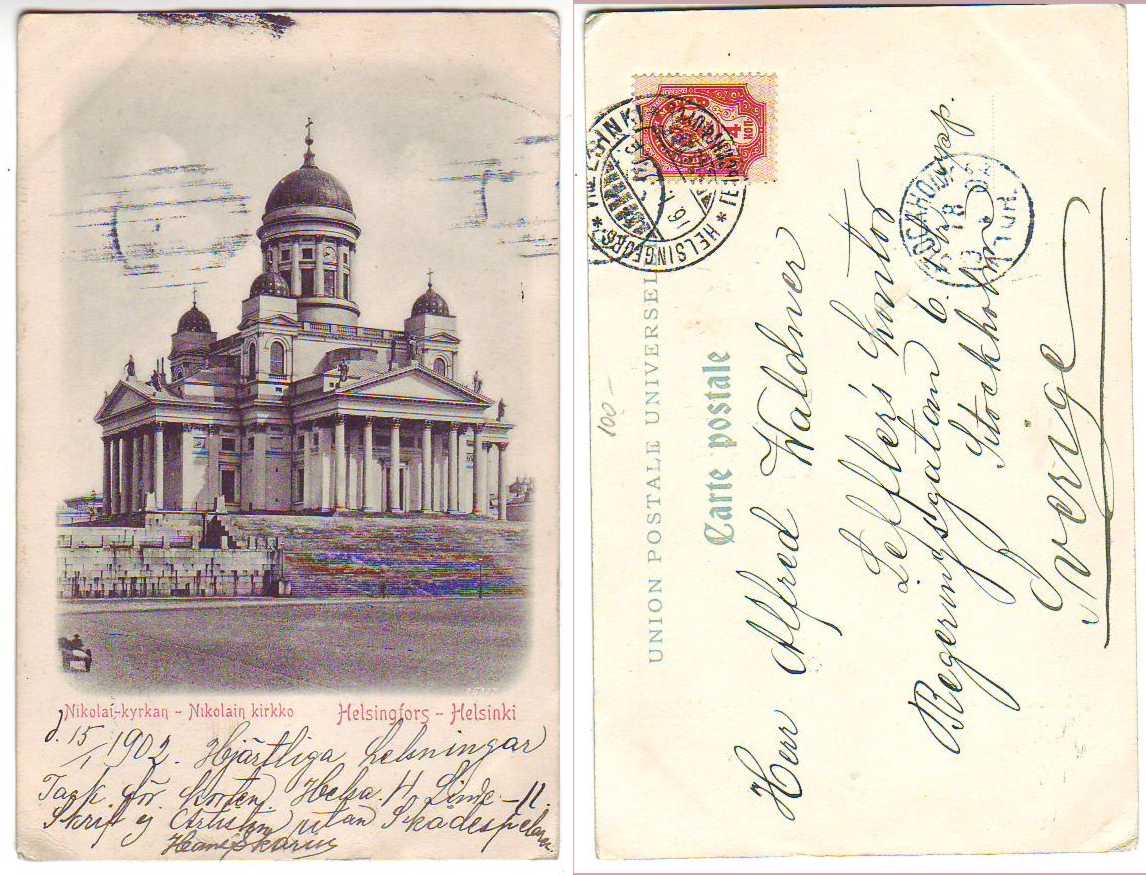 Nikolai-kyrkan - Nikolain kirkko Helsingfors - Helsinki
d. 15/1 1902. Hjärtliga helsningar
Tack för korten. Helsa H Linde -11.
Skrif ej Artisten utan Skådespelaren.
Hans Skarus
4 КОП
HELSINGFORS
UNION POSTALE UNIVERSELLE
Carte postale
100-
Herr Alfred Waldner
Lefflers Kontor
Regeringsgatan 6.
Stockholm
Sverige